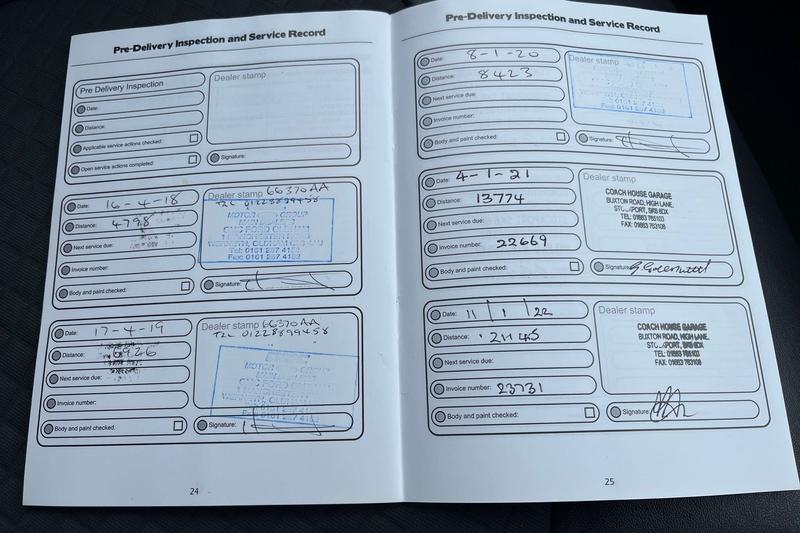 Pre-Delivery Inspection and Service Record
Pre Delivery Inspection
Date:
Distance:
Applicable service actions checked:
Open service actions completed:
Dealer stamp
Signature:
Date: 16-4-18
Distance: 4798
Next service due:
Invoice number:
Body and paint checked:
Dealer stamp 66370AA
TEL 01228899458
MOTOR GROUP
GMG FORD OLDHAM
MANCHESTER
WERNETH, OLDHAM
Tel: 0161 287 41
Fax: 0161 287 4182
Signature:
Date: 17-4-19
Distance: 6926
Next service due:
Invoice number:
Body and paint checked:
Dealer stamp 66370AA
TEL 01228899458
MOTOR GROUP
GMG FORD OLDHAM
Signature:
24
Pre-Delivery Inspection and Service Record
Date: 8-1-20
Distance: 8423
Next service due:
Invoice number:
Body and paint checked:
Dealer stamp
Signature:
Date: 4-1-21
Distance: 13774
Next service due:
Invoice number: 22669
Body and paint checked:
Dealer stamp
COACH HOUSE GARAGE
BUXTON ROAD, HIGH LANE,
TEL: 01663 765103
FAX: 01663 763108
Signature:
Date: 11/1/22
Distance: 21145
Next service due:
Invoice number: 23731
Body and paint checked:
Dealer stamp
COACH HOUSE GARAGE
BUXTON ROAD, HIGH LANE,
FAX: 01663 763108
Signature:
25